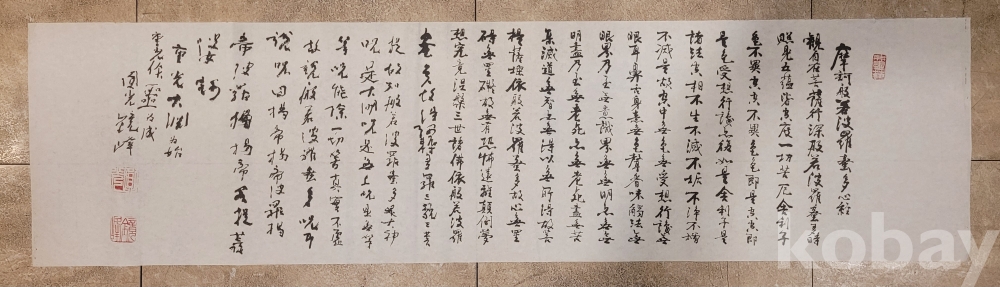 摩訶般若波羅蜜多心經
觀自在菩薩行深般若波羅蜜多時
照見五蘊皆空度一切苦厄舍利子
色不異空空不異色色卽是空空卽
是色受想行識亦復如是舍利子是
諸法空相不生不滅不垢不淨不增
不減是故空中無色無受想行識無
眼耳鼻舌身意無色聲香味觸法無
眼界乃至無意識界無無明亦無無
明盡乃至無老死亦無老死盡無苦
集滅道無智亦無得以無所得故菩
提薩埵依般若波羅蜜多故心無罣
碍無罣碍故無有恐怖遠離顚倒夢
想究竟涅槃三世諸佛依般若波羅
蜜多故得阿耨多羅三藐三菩
提故知般若波羅蜜多是大神
呪是大明呪是無上呪是無等
等呪能除一切苦眞實不虛
故說般若波羅蜜多呪卽
說呪曰揭帝揭帝波羅揭
帝波羅僧揭帝菩提薩
婆訶
鏡峰
kobay